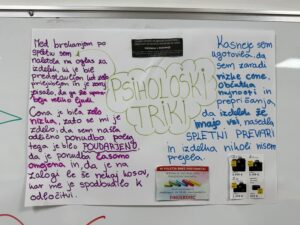 Med brskanjem po
spletu sem
naletela na oglas za
izdelek, ki je bil
predstavljen kot zelo
priljubljen in je zanj
veliko ljudi.
Cena je bila zelo
nizka, zato se mi je
zdelo, da sem našla
odlično ponudbo. Poleg
tega je bilo POUDARJENO,
da je ponudba časovno
omejena in, da je na
zalogi le še nekaj kosov,
kar me je spodbudilo k
odločitvi.
PSIHOLOŠKI
TRIKI
Kasneje sem
ugotovila, da
sem zaradi
nizke cene,
občutka
nujnosti in
prepričanja,
da izdelek že
imajo vsi, nasedla
SPLETNI PREVARI
in izdelka nikoli nisem
prejela.